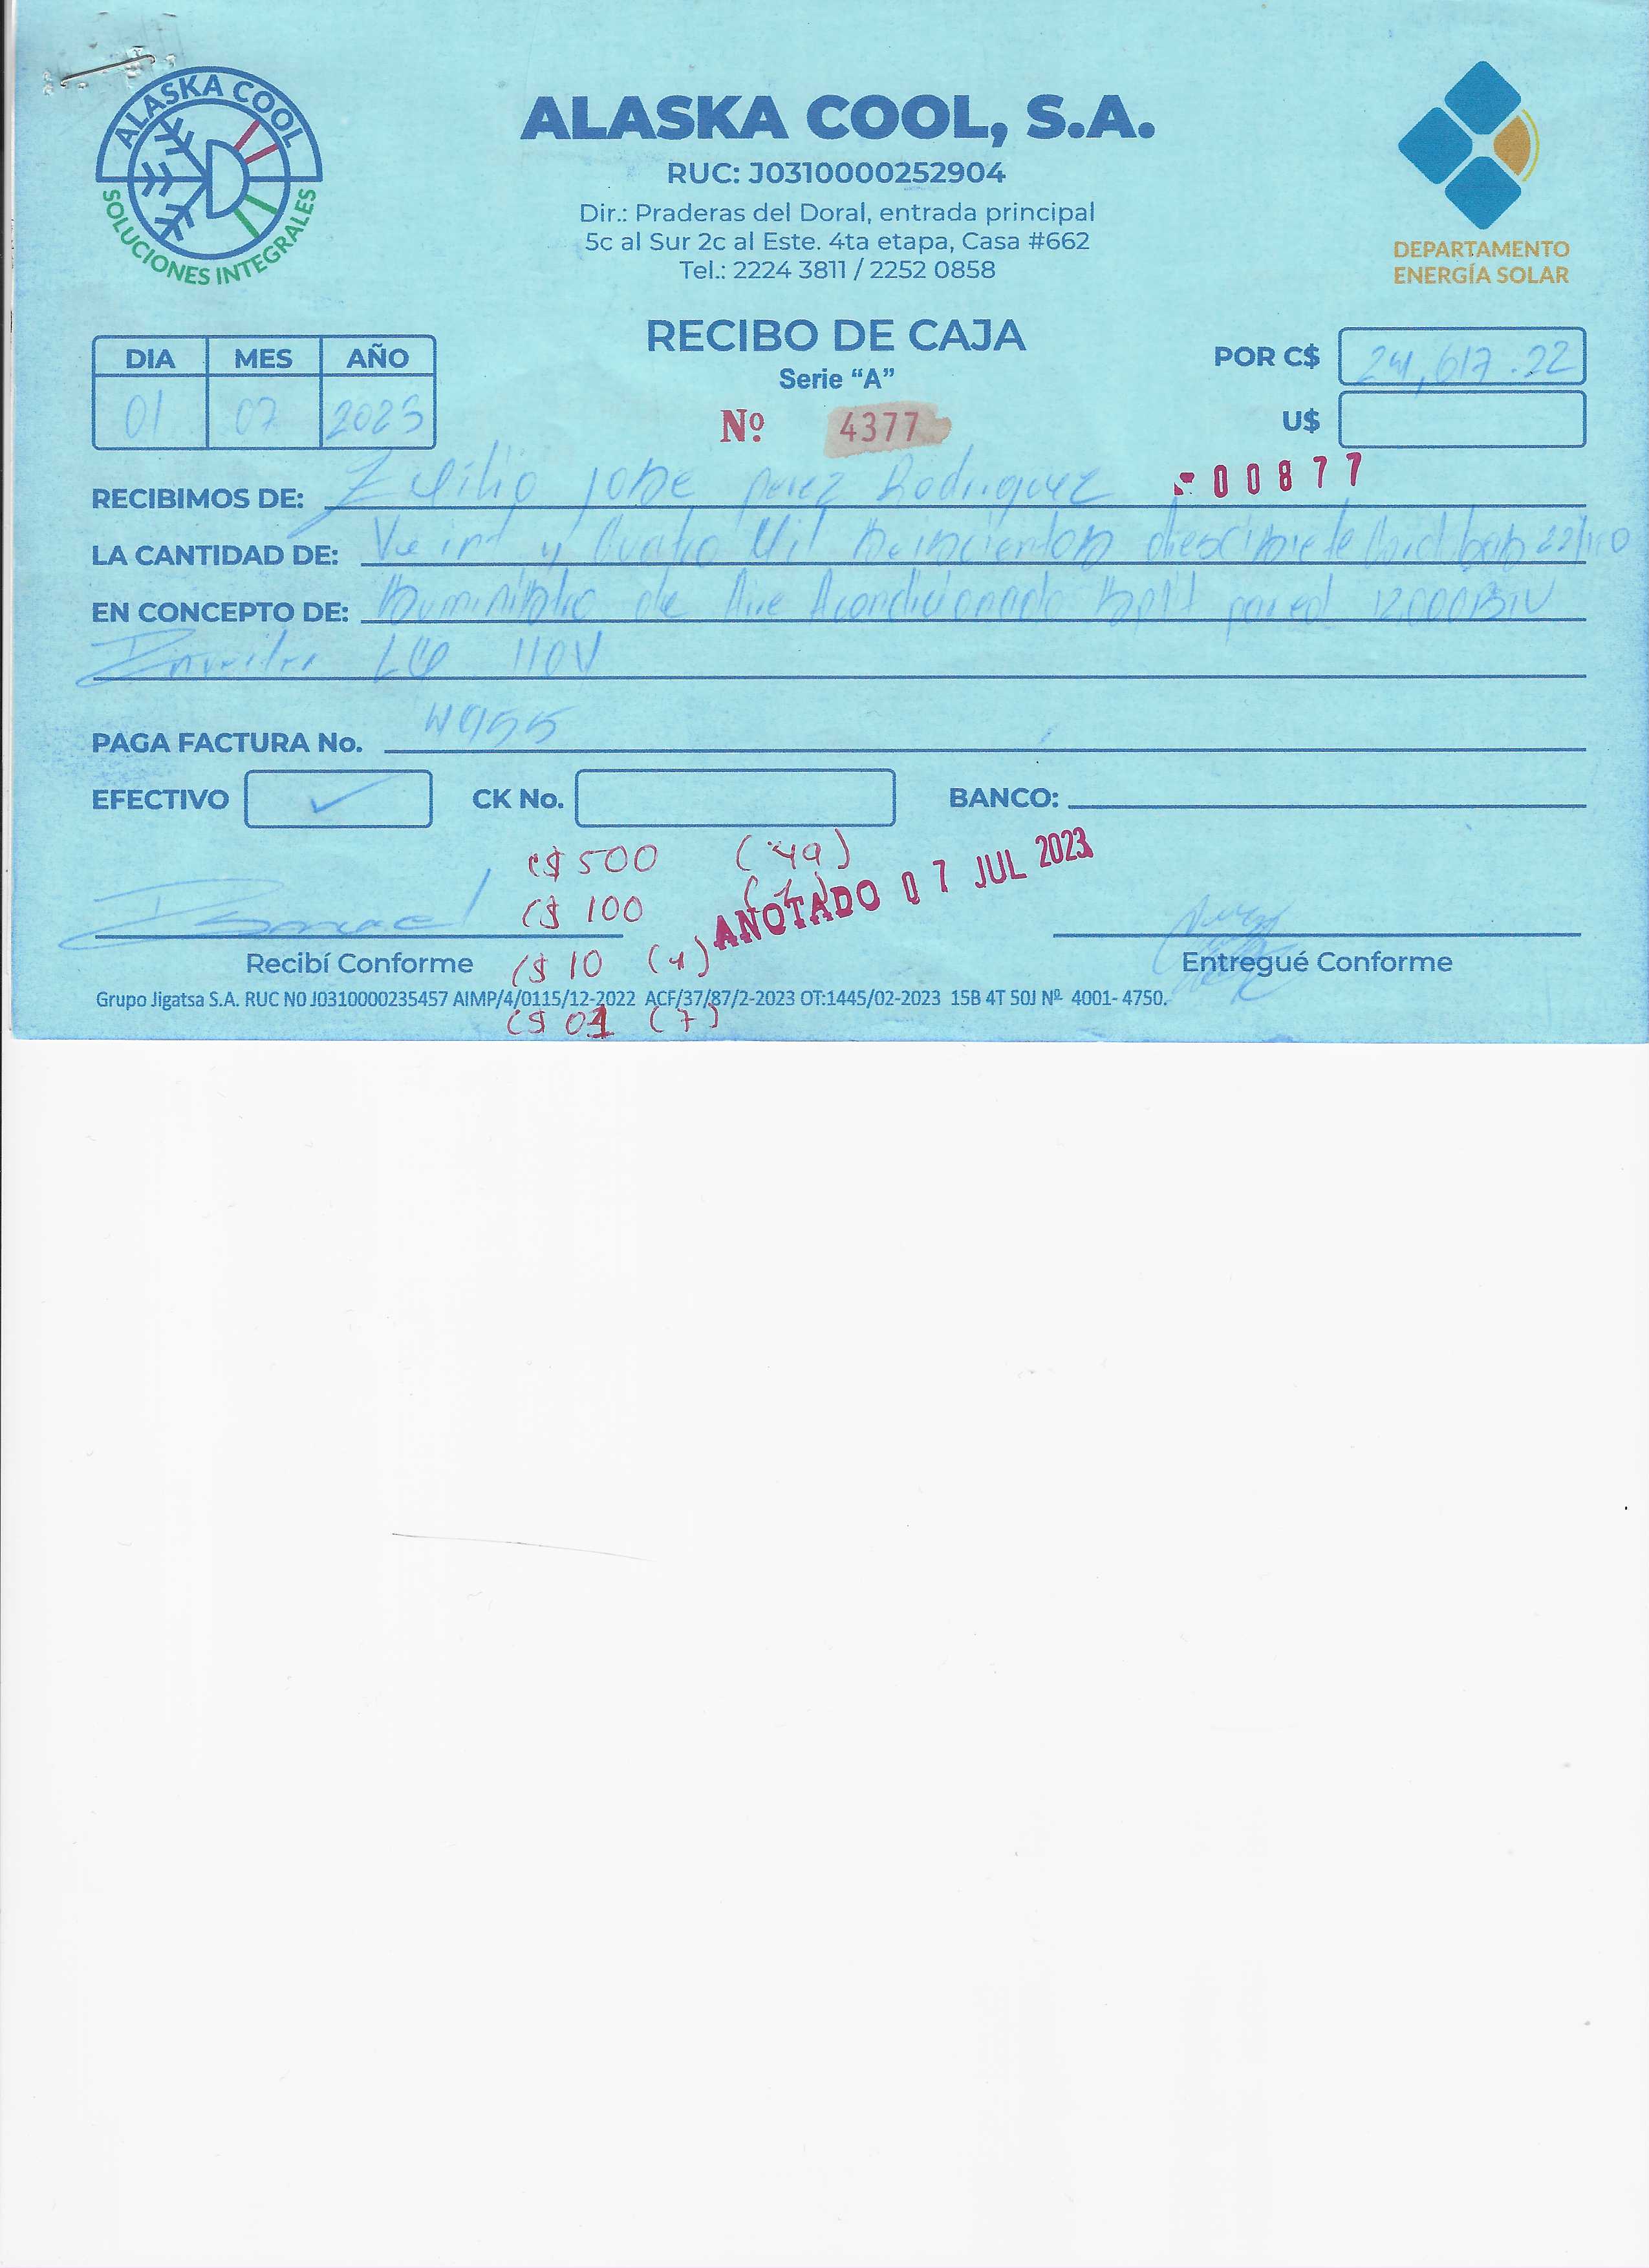 ALASKA COOL
SOLUCIONES INTEGRALES
ALASKA COOL, S.A.
RUC: J0310000252904
Dir.: Praderas del Doral, entrada principal
5c al Sur 2c al Este. 4ta etapa, Casa #662
Tel.: 2224 3811 / 2252 0858
DEPARTAMENTO
ENERGÍA SOLAR
RECIBO DE CAJA
Serie “A”
Nº 4377
DIA MES AÑO
01 07 2023
POR C$ 24,617.22
U$
RECIBIMOS DE: Jose Perez Rodriguez 00877
LA CANTIDAD DE: y Cuatro Mil 22/100
EN CONCEPTO DE: de Aire Acondicionado Split pared 12000BTU
Inverter LG 110V
PAGA FACTURA No. 4955
EFECTIVO ✓ CK No. BANCO:
C$ 500 (49)
C$ 100 (1)
ANOTADO 07 JUL 2023
Recibí Conforme
C$ 10 (1)
Entregué Conforme
Grupo Jigatsa S.A. RUC N0 J0310000235457 AIMP/4/0115/12-2022 ACF/37/87/2-2023 OT:1445/02-2023 15B 4T 50J Nº 4001- 4750.
C$ 01 (7)